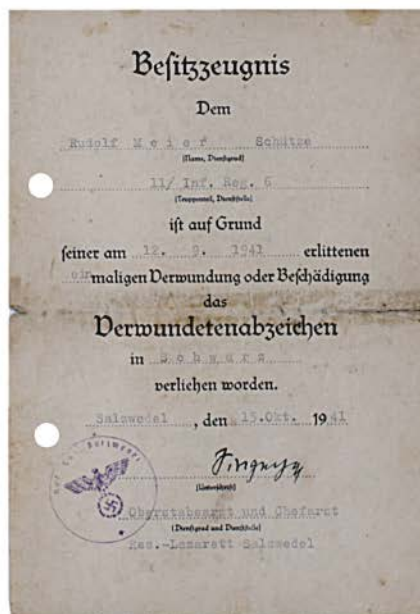 Besitzzeugnis
Dem
Rudolf Meier Schütze
(Name, Dienstgrad)
11/ Inf. Reg. 6
(Truppenteil, Dienststelle)
ist auf Grund
seiner am 12. 9. 1941 erlittenen
ein maligen Verwundung oder Beschädigung
das
Verwundetenabzeichen
in Schwarz
verliehen worden.
Salzwedel, den 15.Okt. 1941
(Unterschrift)
Oberstabsarzt und Chefarzt
(Dienstgrad und Dienststelle)
Res.-Lazarett Salzwedel